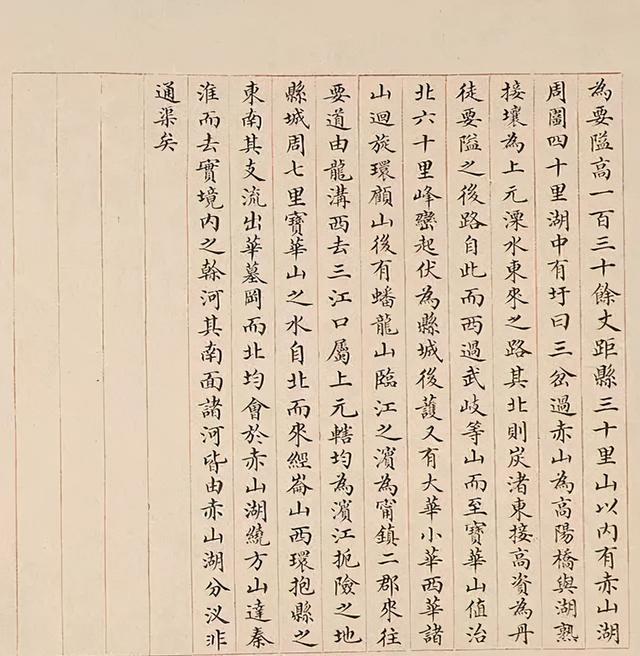 為要隘高一百三十餘丈距縣三十里山以内有赤山湖
周圍四十里湖中有圩曰三岔過赤山為高陽橋與湖熟
接壤為上元溧水東來之路其北則炭渚東接高資為丹
徒要隘之後路自此而西過武岐等山而至寶華山值治
北六十里峰巒起伏為縣城後護又有大華小華西華諸
山迴旋環顧山後有蟠龍山臨江之濱為甯鎮二郡來往
要道由龍溝西去三江口屬上元轄均為濱江扼險之地
縣城周七里寶華山之水自北而來經崙山西環抱縣之
東南其支流出華墓岡而北均會於赤山湖繞方山達秦
淮而去實境内之幹河其南面諸河皆由赤山湖分汊非
通渠矣